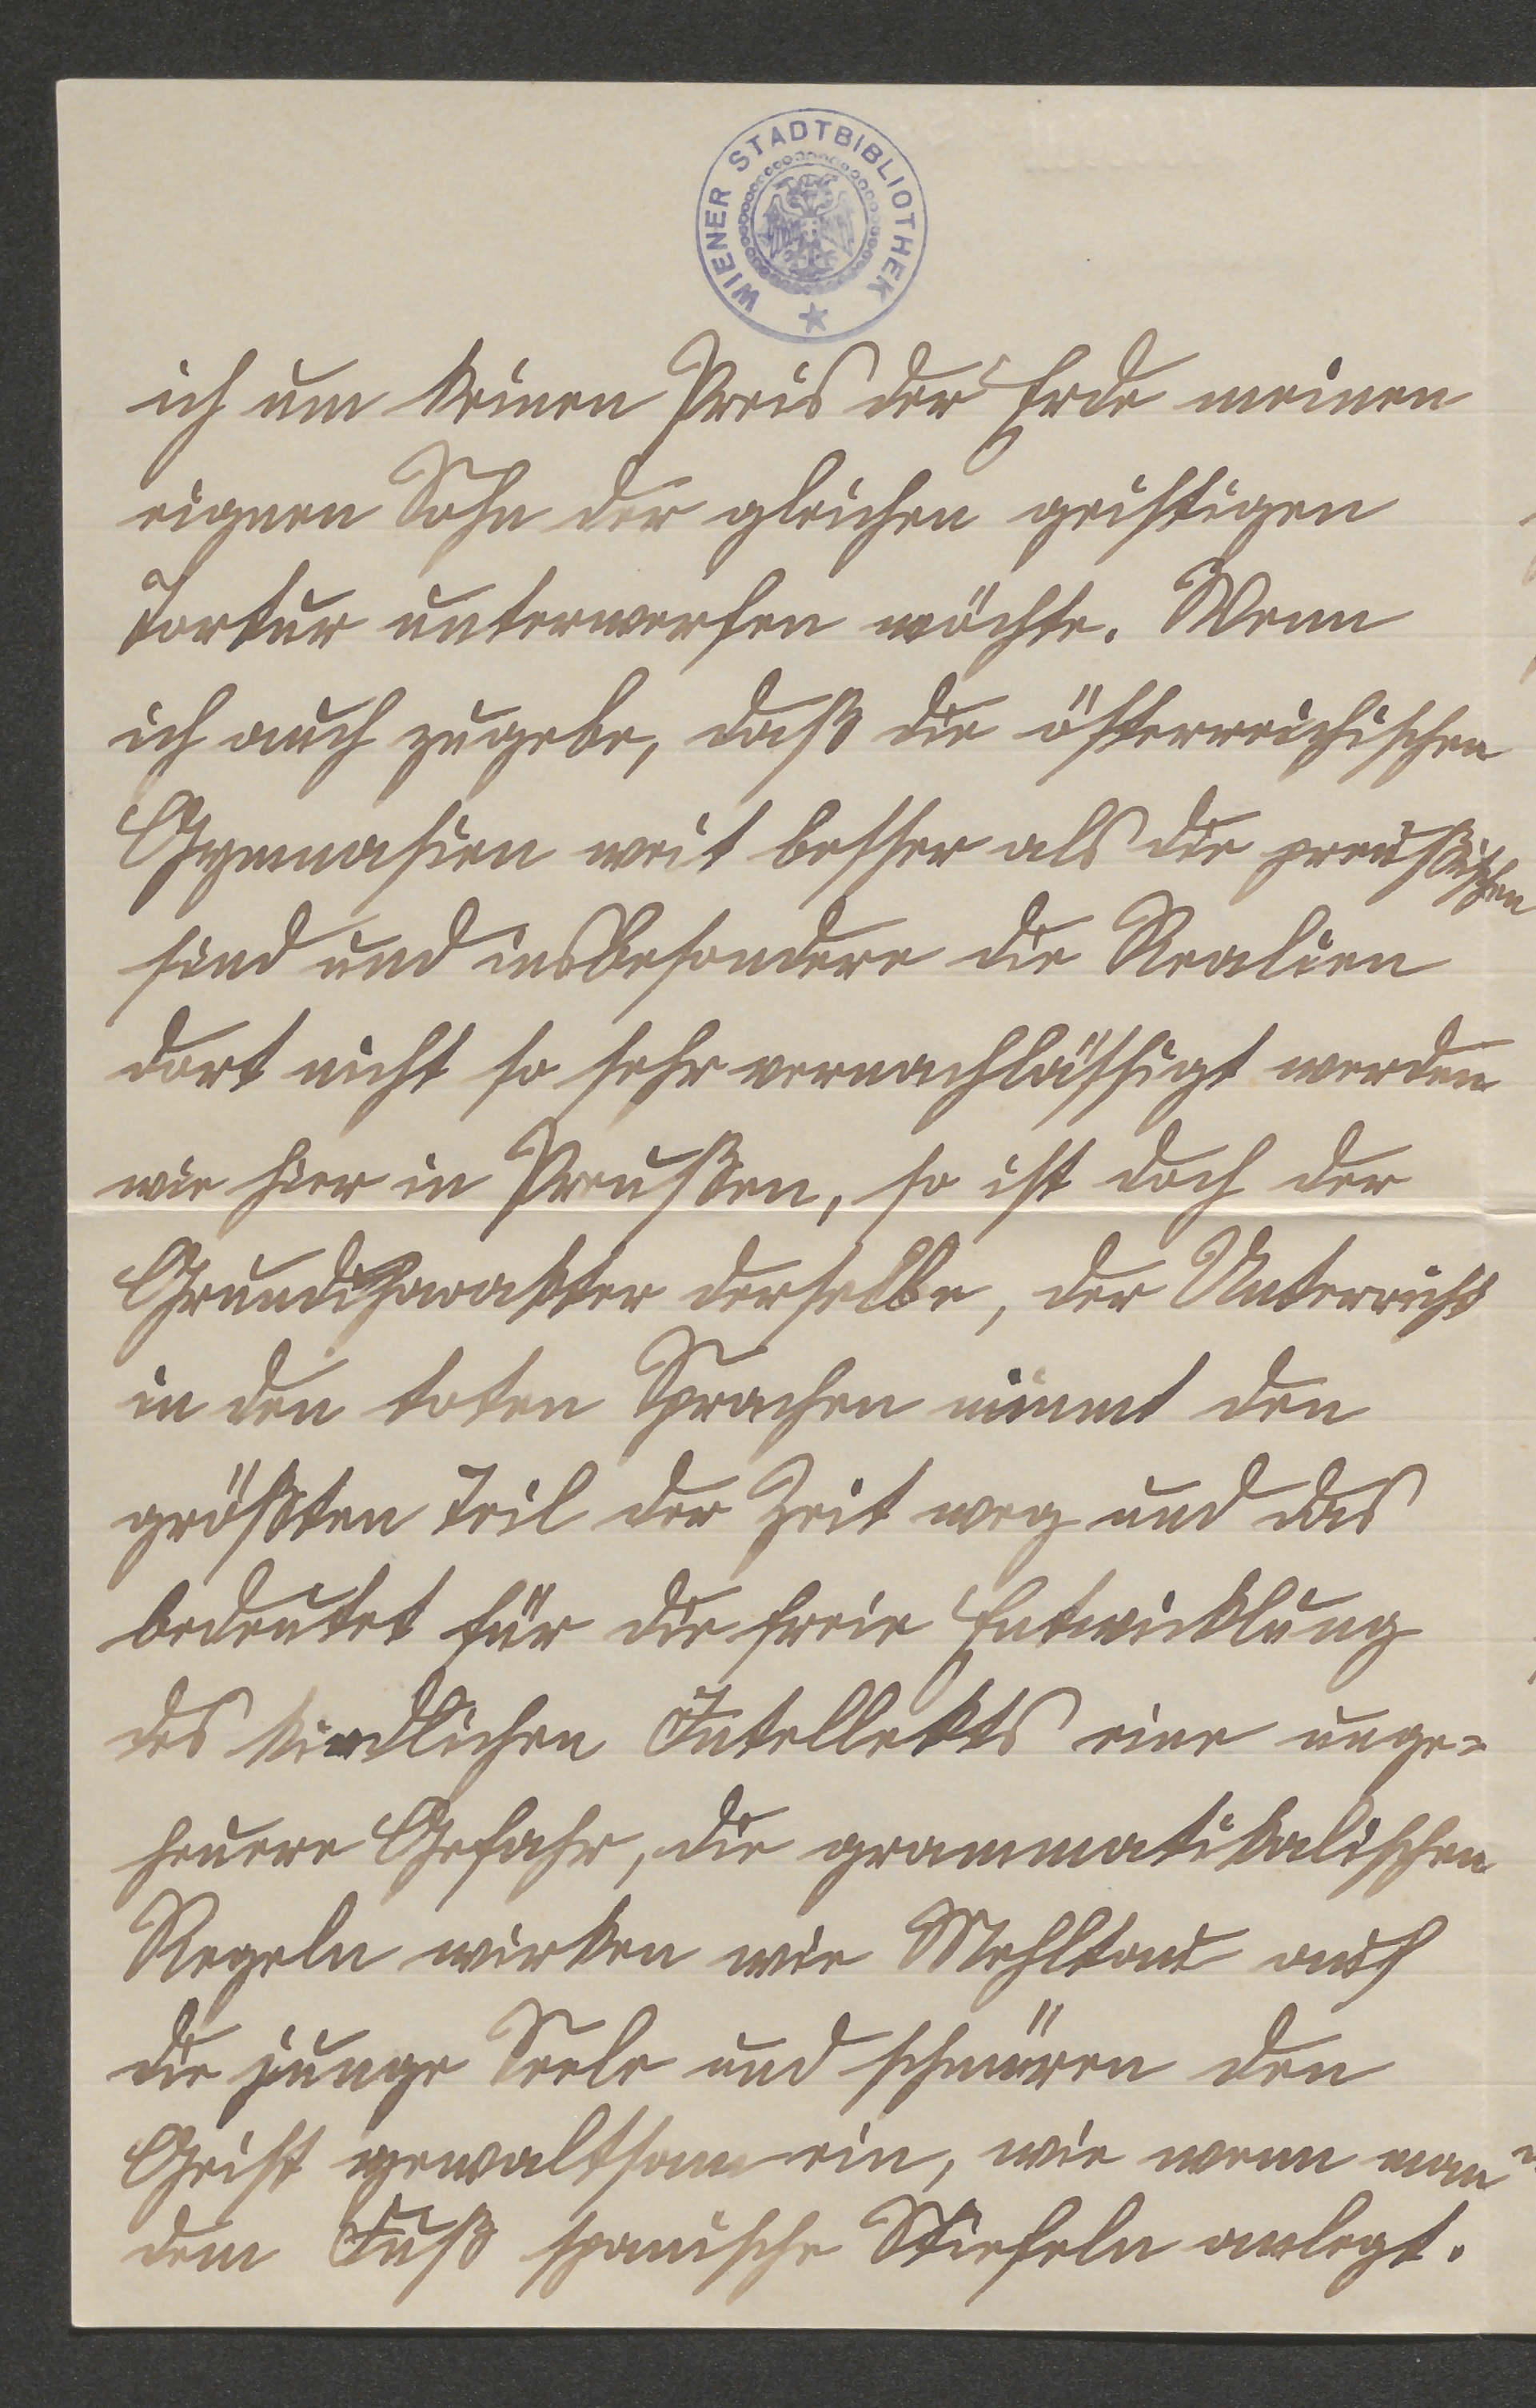 WIENER STADTBIBLIOTHEK
ich um keinen Preis der Erde meinen
eignen Sohn der gleichen geistigen
Tortur unterwerfen möchte. Wenn
ich auch zugebe, daß die österreichischen
Gymnasien weit besser als die preußischen
sind und insbesondere die Realien
dort nicht so sehr vernachlässigt werden
wie hier in Preußen, so ist doch der
Grundcharakter derselbe, der Unterricht
in den toten Sprachen nimmt den
größten Teil der Zeit weg und das
bedeutet für die freie Entwicklung
des kindlichen Intellekts eine unge-
heuere Gefahr, die grammatikalischen
Regeln wirken wie Mehltau auf
die junge Seele und schnüren den
Geist gewaltsam ein, wie wenn man
dem Fuß spanische Stiefeln anlegt.